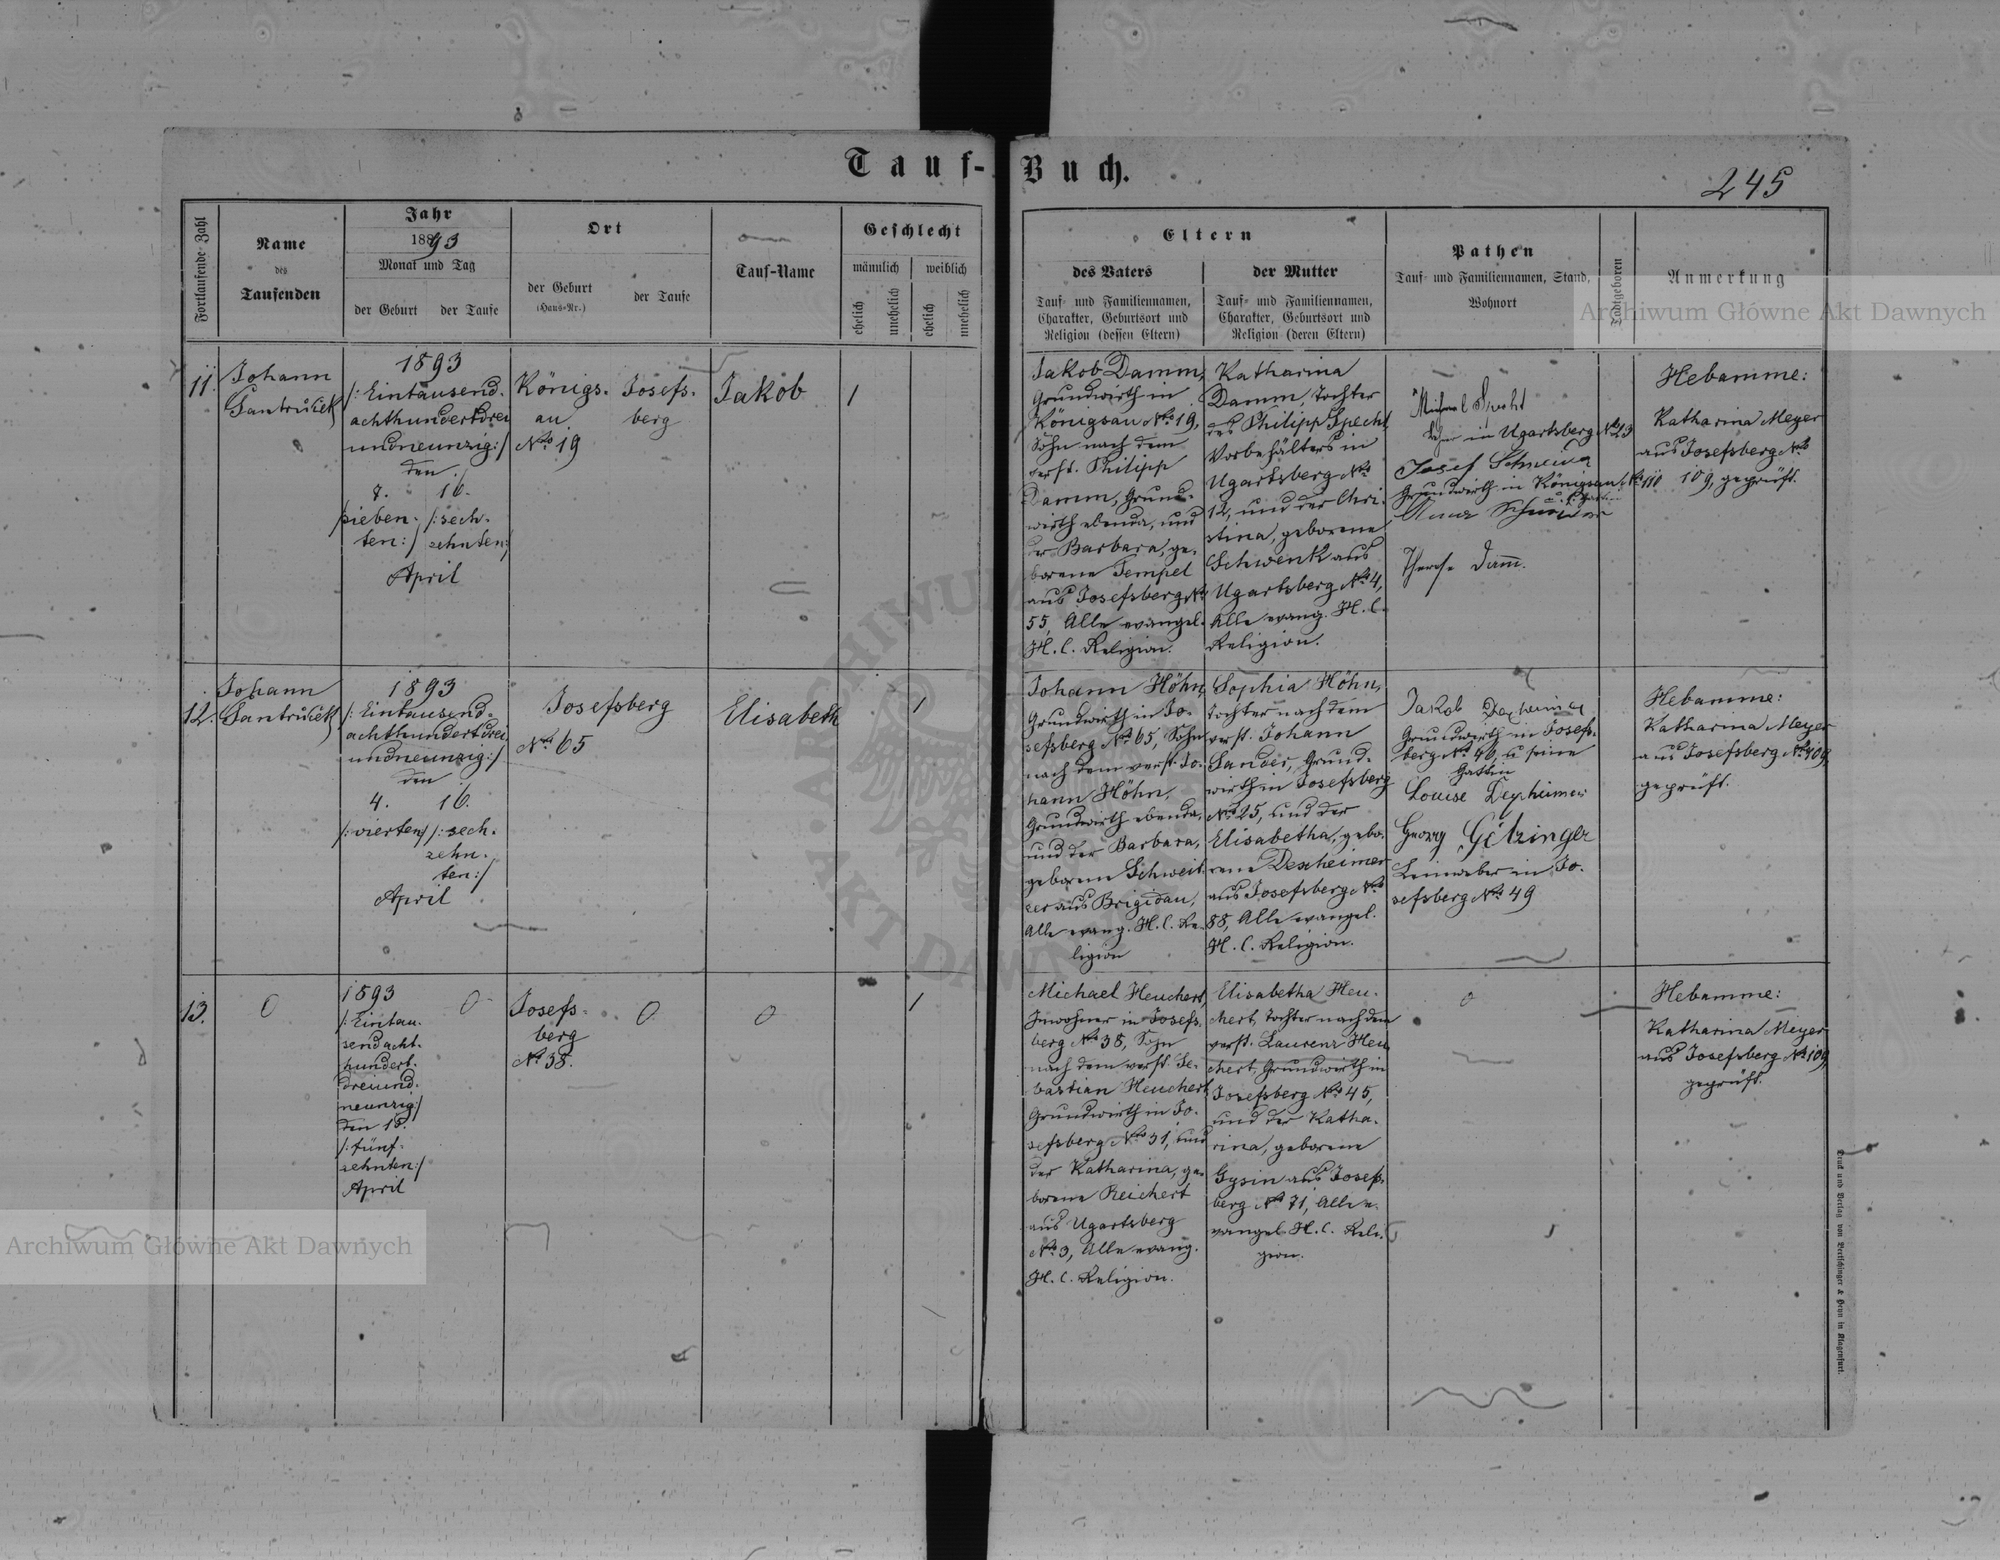 Tauf-Buch.
245
Fortlaufende Zahl
Name
des
Taufenden
Jahr
1893
Monat und Tag
der Geburt
der Taufe
Ort
der Geburt
(Haus-Nr.)
der Taufe
Tauf-Name
Geschlecht
männlich
weiblich
ehelich
unehelich
ehelich
unehelich
Eltern
des Vaters
Tauf- und Familiennamen,
Charakter, Geburtsort und
Religion (dessen Eltern)
der Mutter
Tauf- und Familiennamen,
Charakter, Geburtsort und
Religion (deren Eltern)
Pathen
Tauf- und Familiennamen, Stand,
Wohnort
Todtgeboren
Anmerkung
11.
Johann
1893
/: Eintausend-
achthundertdrei
undneunzig :/
den
7. 16.
sieben- /: sech-
ten :/ zehnten :/
April
Königs-
au
No 19
Josefs-
berg
Jakob
1
Jakob Damm,
Grundwirth in
Königsau No 19,
Sohn nach dem
verst. Philipp
Damm, Grund-
wirth ebenda, und
der Barbara, ge-
borene Tempel
aus Josefsberg No
55, Alle evangel.
H. C. Religion.
Katharina
Damm, Tochter
des Philipp Specht
Vorbehälters in
Ugartsberg No
12, und der Chri-
stina, geborene
Schwenk aus
Ugartsberg No 4,
Alle evang. H. C.
Religion.
Michael Specht
in Ugartsberg No 23
Josef Schneider
Grundwirth in Königsau No 110
Anna Schneider
Therese Damm.
Hebamme:
Katharina Meyer
aus Josefsberg No
109, geprüft.
12.
Johann
1893
/: Eintausend-
achthundertdrei
undneunzig :/
den
4. 16.
/: vierten :/ /: sech-
zehn-
ten :/
April
Josefsberg
No 65
Elisabeth
1
Johann Höhn,
Grundwirth in Jo-
sefsberg No 65, Sohn
nach dem verst. Jo-
hann Höhn,
Grundwirth ebenda,
und der Barbara,
geborene Schweit-
zer aus Brigidau,
Alle evang. H. C. Re-
ligion
Sophia Höhn,
Tochter nach dem
verst. Johann
Sander, Grund-
wirth in Josefsberg
No 25, und der
Elisabetha, gebo-
rene Dexheimer
aus Josefsberg No
88, Alle evangel.
H. C. Religion.
Jakob Dexheimer
Grundwirth in Josefs-
berg No 46, u. seine
Gattin
Louise Dexheimer
Georg Götzinger
Leinweber in Jo-
sefsberg No 49
Hebamme:
Katharina Meyer
aus Josefsberg No 109,
geprüft.
13.
0
1893
/: Eintau-
sendacht-
hundert-
dreiund-
neunzig :/
den 15.
/: fünf-
zehnten :/
April
0
Josefs-
berg
No 38.
0
0
1
Michael Heuchert,
Inwohner in Josefs-
berg No 38, Sohn
nach dem verst. Se-
bastian Heuchert,
Grundwirth in Jo-
sefsberg No 31, und
der Katharina, ge-
borene Reichert
aus Ugartsberg
No 3, Alle evang.
H. C. Religion.
Elisabetha Heu-
chert, Tochter nach dem
verst. Laurenz Heu-
chert, Grundwirth in
Josefsberg No 45,
und der Katha-
rina, geborene
Gysin aus Josefs-
berg No 71, Alle e-
vangel. H. C. Reli-
gion.
0
Hebamme:
Katharina Meyer
aus Josefsberg No 109,
geprüft.
Druck und Verlag von Bertschinger & Heyn in Klagenfurt.
Archiwum Główne Akt Dawnych
Archiwum Główne Akt Dawnych
ARCHIWUM
AKT DAWNYCH